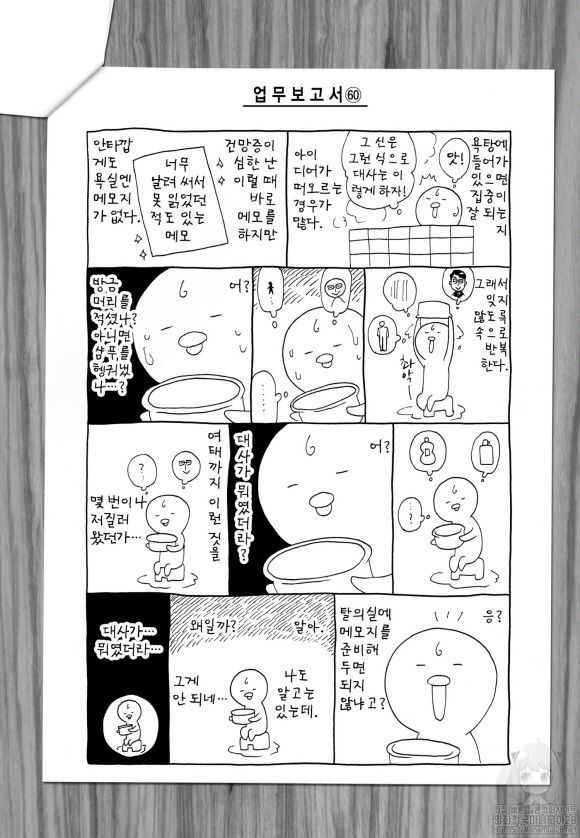 업무보고서㊿
욕탕에
들어가
있으면
집중이
잘 되는
지
앗!
그 신은
그런 식으로
대사는 이
렇게 하자!
아이
디어가
떠오르는
경우가
많다.
건망증이
심한 난
이럴 때
바로
메모를
하지만
너무
날려 써서
못 읽었던
적도 있는
메모
안타깝
게도
욕실엔
메모지
가 없다.
그래서
잊지
않도록
속으로
반복
한다.
촤악
…
…
어?
방금
머리를
적셨나?
아니면
샴푸를
헹궈냈
나…?
…?
어?
대사가
뭐였더라?
여태까지 이런 것을
…?
몇 번이나
저질러
왔던가…
응?
탈의실에
메모지를
준비해
두면
되지
않냐고?
알아.
나도
알고는
있는데.
왜일까?
그게
안 되네…
대사가…
뭐였더라…